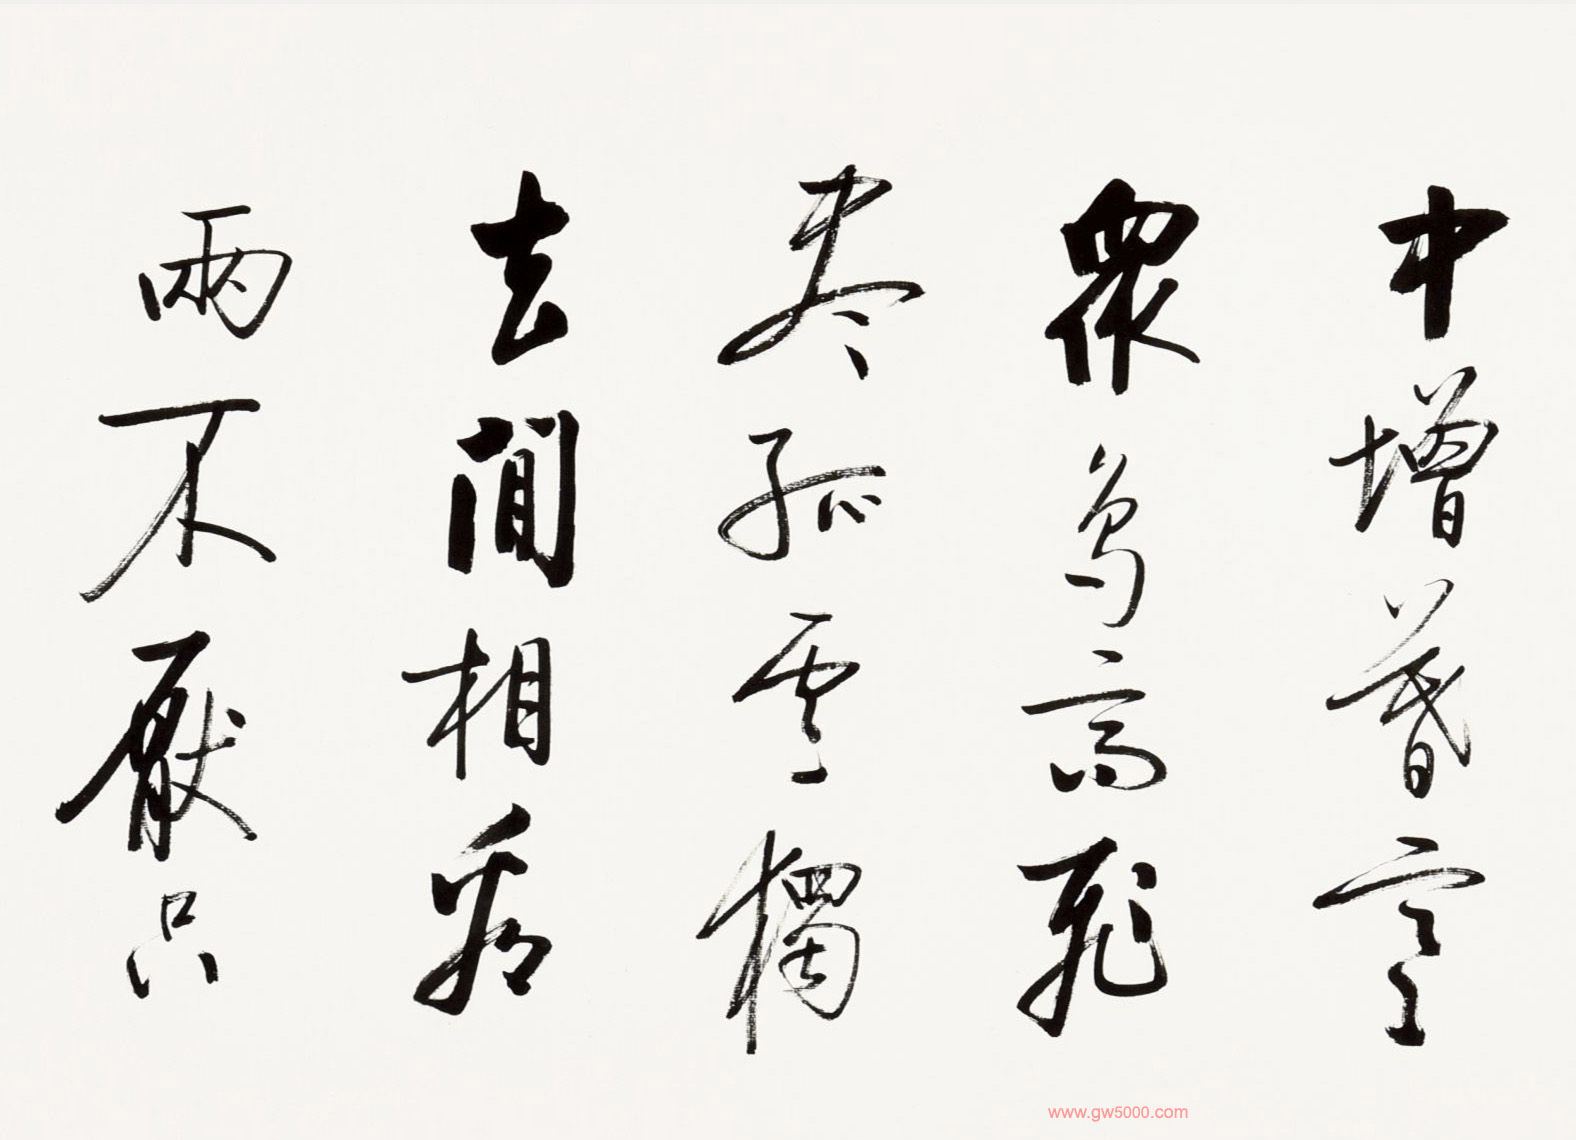 中增暮寒
眾鳥高飛
盡孤雲獨
去閒相看
兩不厭只
www.gw5000.com